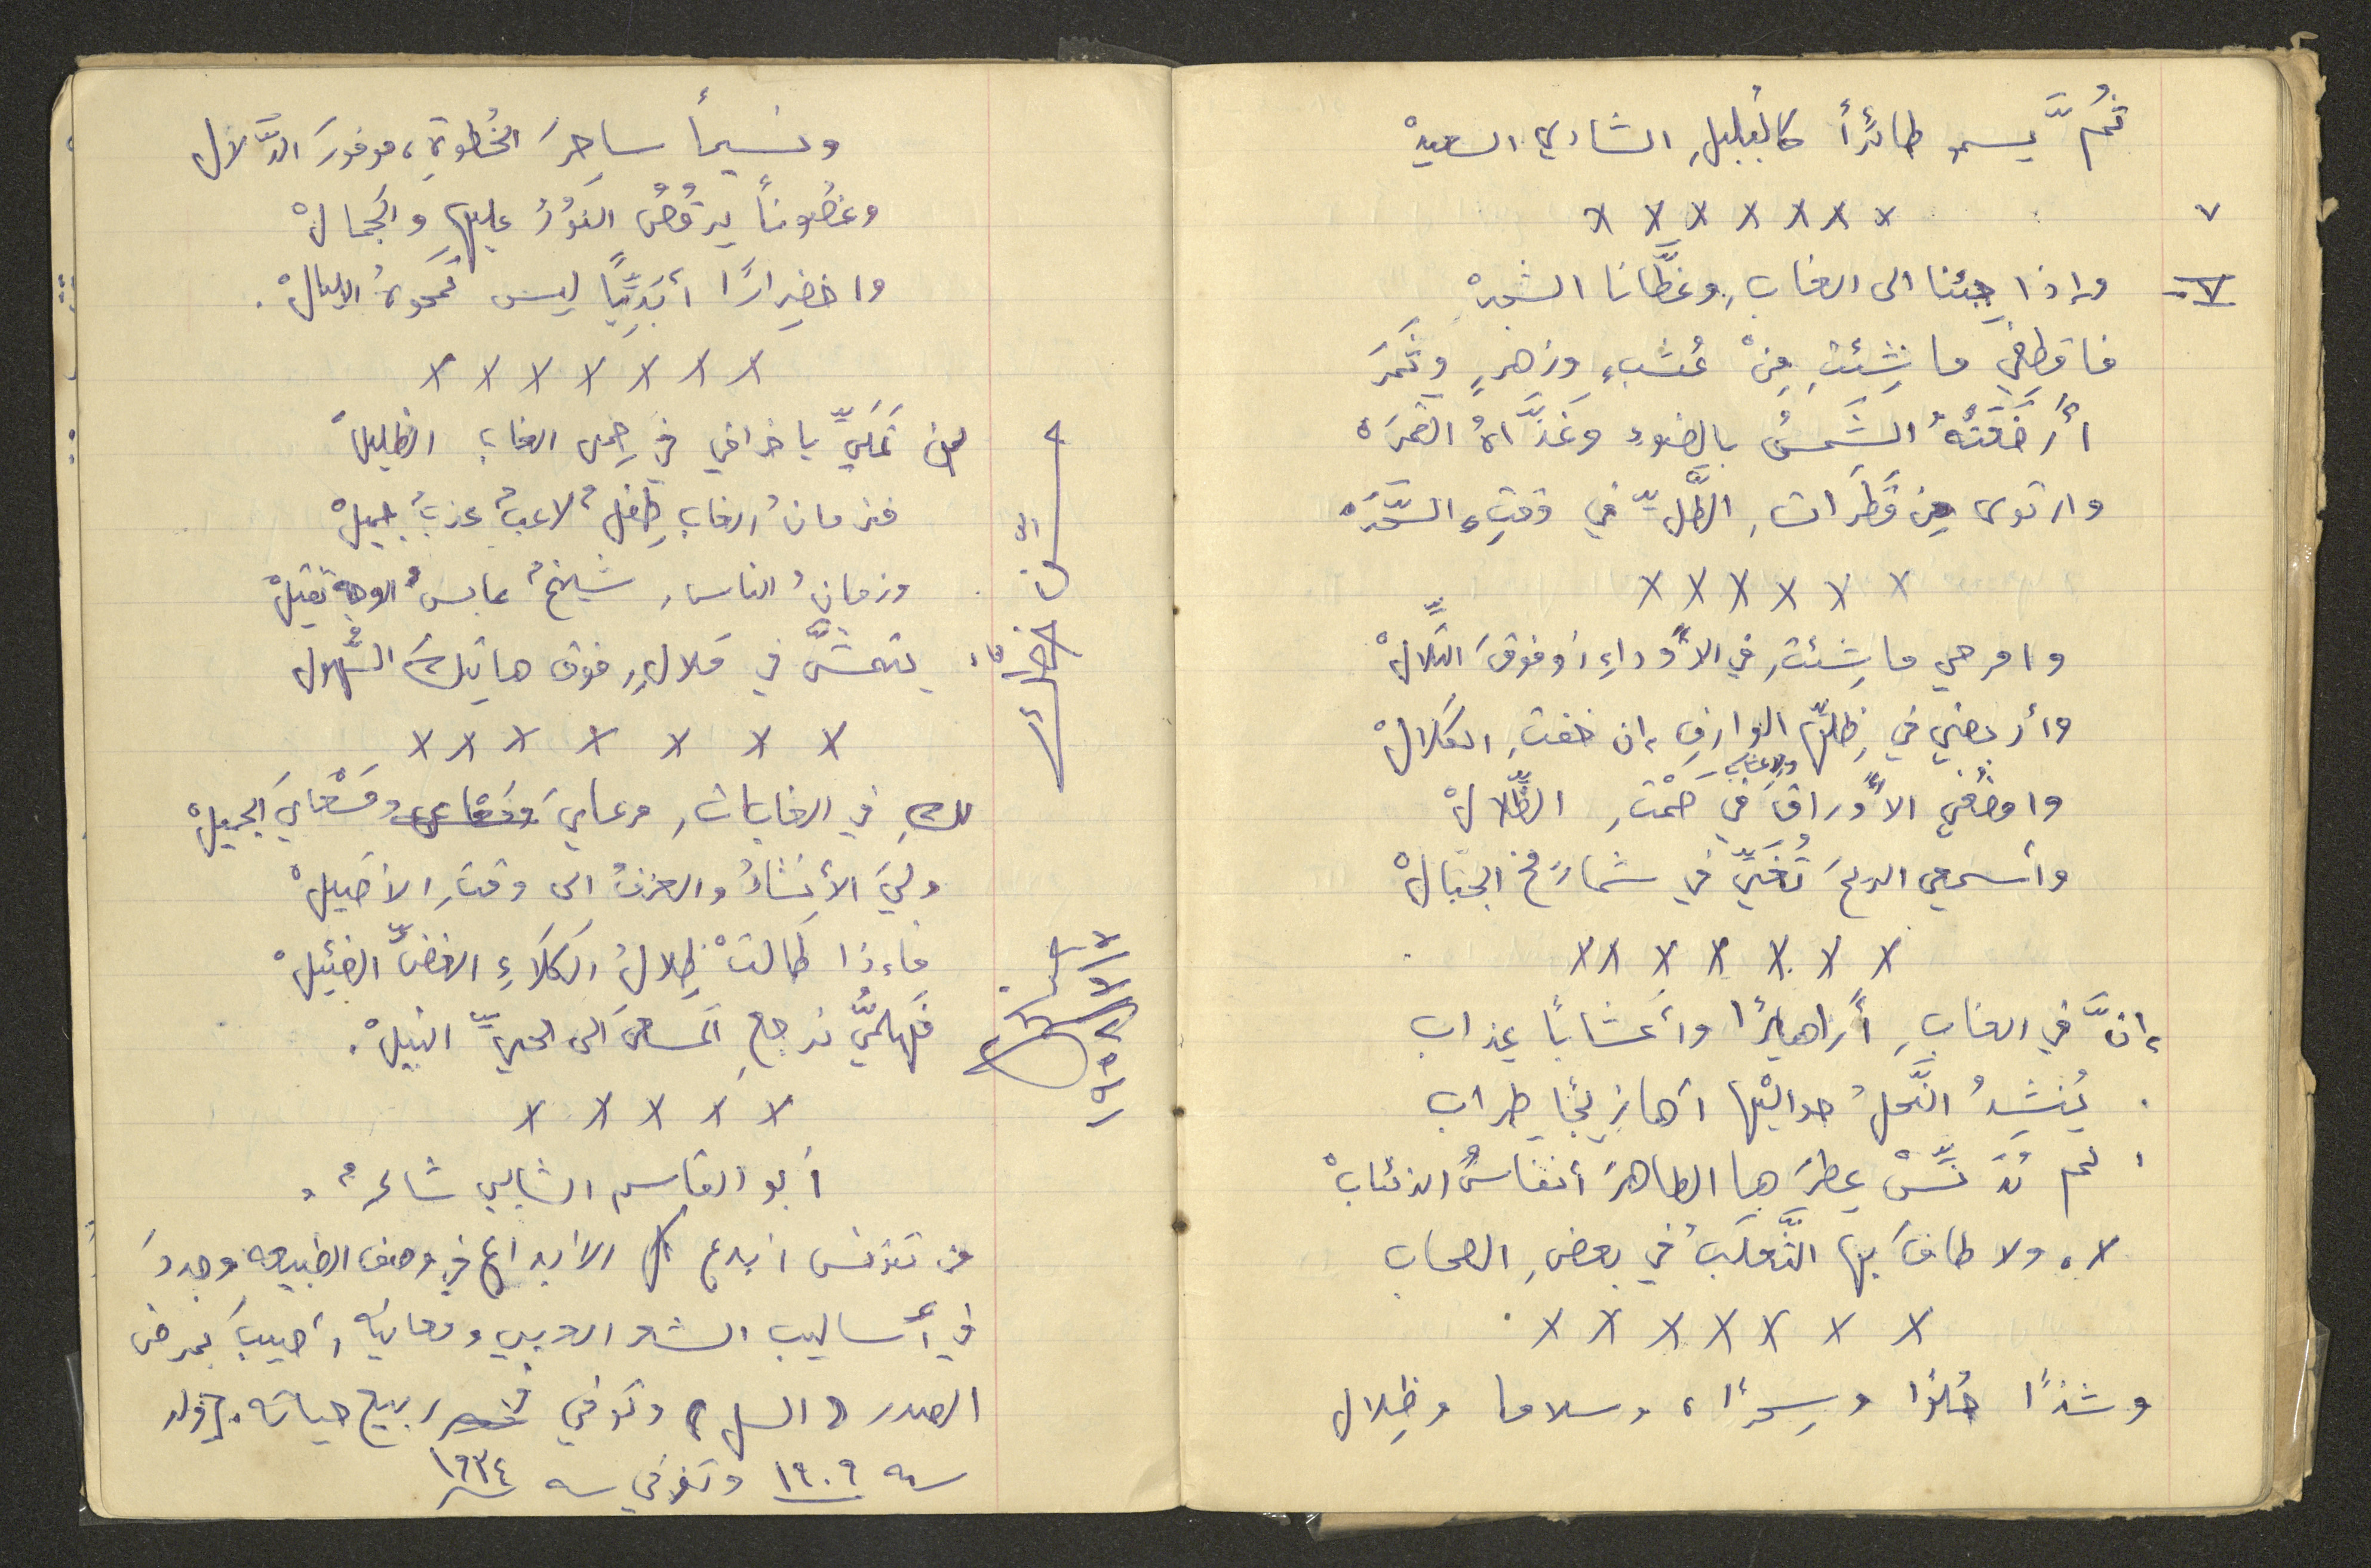 ثُمَّ يسمو طائراً كالبُلبلِ الشادي السعيدْ
x x x x x x x
٧
٧- وإذا جِئنا الى الغابِ، وغطَّانا الشجرْ
فاقطِفي ما شِئتِ مِنْ عُشبٍ وزهرٍ وثَمَرَ
أَرضَعَتْهُ الشَّمسُ بالضوءِ وغَذَّاهُ القمرَ
وارتوى مِن قَطَراتِ الطَّلِّ في وقتِ السَّحَرَ
x x x x x x
وامرحي ما شِئتِ في الأَوداءِ أو فوقَ التِّلالْ
وأربضي في ظِلِّها الوارفِ، ان خفتِ الكَلالْ
وامضُغي الأَوراقَ والأعشابَ في صَمْتِ الظِّلالْ
وأسمعي الريحَ تُغَنِّي في شَماريخِ الجبَالْ
x x x x x x x
إنَّ في الغابِ أَزاهيرًا وأَعشاباً عِذاب
يُنشِدُ النَّحلُ حوالَيْها أهازيجًا طِراب
لم تُدَنِّسْ عِطرَها الطاهرَ أنفاسُ الذئابْ
لا، ولا طافَ بها الثَّعلَبُ في بعضِ الصحاب
x x x x x x x
وشذًا حُلوًا وسِحرًا، وسلاما وظِلال
ونسيماً ساحِرَ الخُطوةِ، موفورَ الدَّلال
وغصُوناً يرقُصُ النورُ عليها والجمالْ
واخضِرارًا أبَدِيًّا ليس تَمحوهُ الليالْ.
x x x x x x x
لن تَمَلِّي يا خرافي في حِمى الغابِ الظليلْ
فزمانُ الغابِ طِفلٌ لاعبٌ عذبٌ جميلْ
وزمانُ الناسِ شيخٌ عابسُ الوجهِ ثقيلْ
يتمشَّى في مَلالٍ، فوق هاتيكَ السُّهول
x x x x x x x
لكِ في الغاباتِ مرعايَ ومَسْعايَ الجميلْ
وليَ الأَنشادُ والعزفُ الى وقتِ الأصيلْ
فإذا طالتْ ظِلالُ الكلاءِ الغضِّ الضئيلْ
فَهلمِّي نرجِعِ المَسعى الى الحيِّ النبيلْ.
x x x x x
أبو القاسم الشابي شاعرٌ
من تونس أبدع كل الابداع في وصف الطبيعه وجددَ
في أساليب الشعر العربي ومعانيه، أصيبَ بمرض
الصدر (السل) وتوفي في ربيع حياته. ولد
سنه ١٩٠٩ وتوفي سنه ١٩٣٤